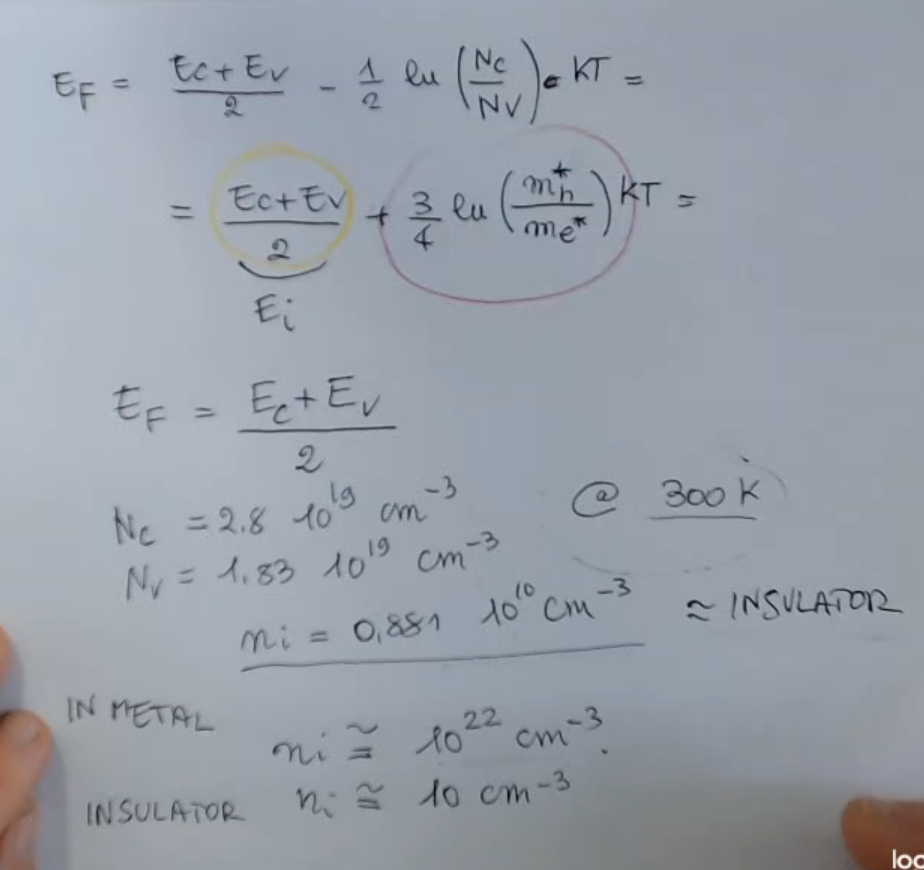 E_F = (Ec + Ev)/2 - 1/2 ln (Nc/Nv) • KT =
= (Ec + Ev)/2 + 3/4 ln (m*h/me*) KT =
Ei
E_F = (Ec + Ev)/2
Nc = 2.8 10^19 cm^-3 @ 300 K
Nv = 1.83 10^19 cm^-3
ni = 0,881 10^10 cm^-3 ≈ INSULATOR
IN METAL ni ≅ 10^22 cm^-3.
INSULATOR ni ≅ 10 cm^-3
loc